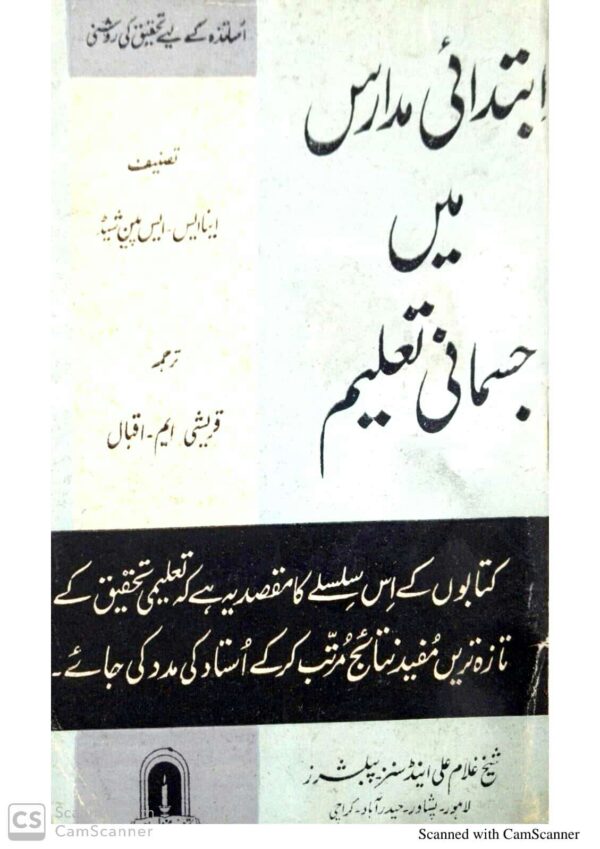 اساتذہ کے لیے تحقیق کی روشنی
ابتدائی مدارس
میں
جسمانی تعلیم
تصنیف
اینا ایس۔ ایس پین شیڈ
ترجمہ
قریشی ایم۔ اقبال
کتابوں کے اِس سِلسلے کا مقصد یہ ہے کہ تعلیمی تحقیق کے
تازہ ترین مُفید نتائج مُرتّب کر کے اُستاد کی مدد کی جائے۔
شیخ غلام علی اینڈ سنز پبلشرز
لاہور۔ پشاور۔ حیدرآباد۔ کراچی
CS
CamScanner
Scanned with CamScanner